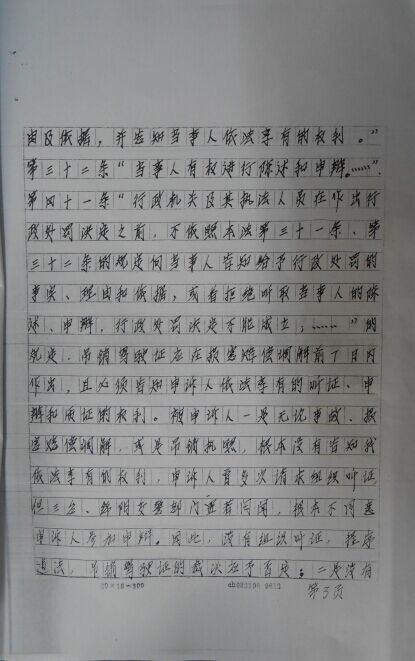 由及依据，并告知当事人依法享有的权利。”
第三十二条“当事人有权进行陈述和申辩。……”、
第四十一条“行政机关及其执法人员在作出行
政处罚决定之前，不依照本法第三十一条、第
三十二条的规定向当事人告知给予行政处罚的
事实、理由和依据，或者拒绝听取当事人的陈
述、申辩，行政处罚决定不能成立；……”的
规定，吊销驾驶证应在损害赔偿调解前7日内
作出，且必须告知申诉人依法享有的听证、申
辩和质证的权利。被申诉人一是无论事故、损
害赔偿调解，或是吊销执照，根本没有告知我
依法享有的权利，申诉人曾多次请求组织听证
但三台、绵阳交警部门置若罔闻，根本不同意
申诉人参加申辩。因此，没有组织听证，程序
违法，吊销驾驶证的裁决应予否定。二是没有
20×15=300
第3页